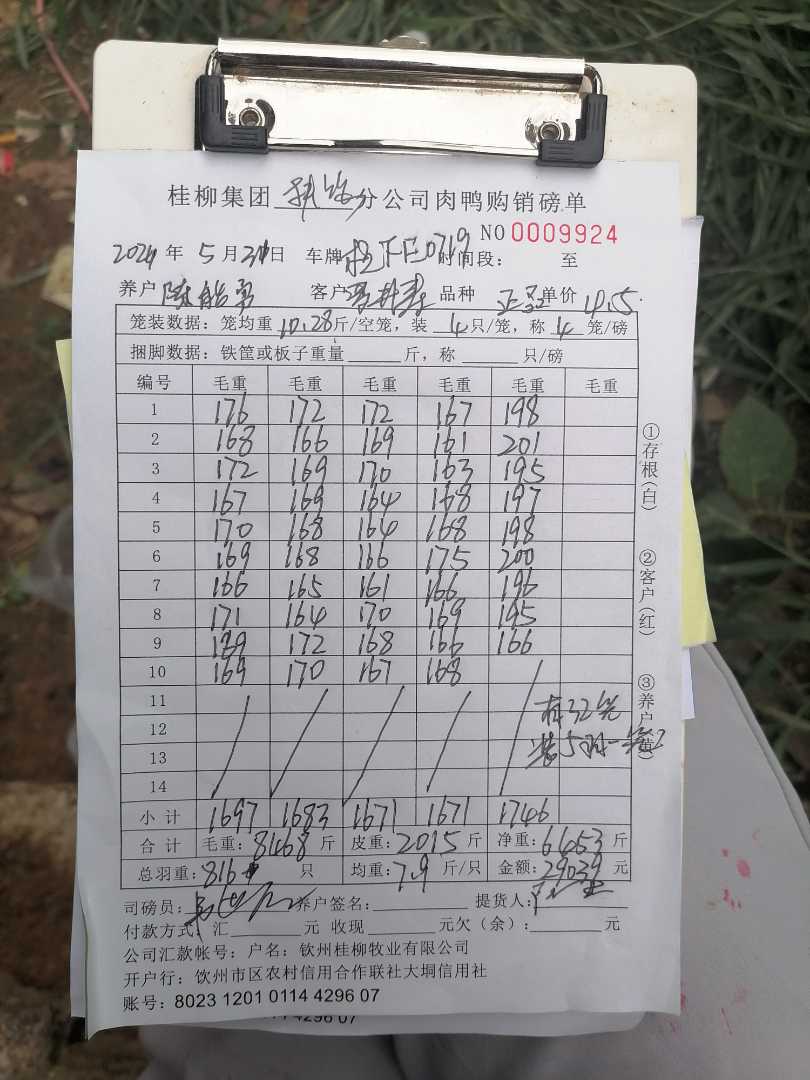 桂柳集团 分公司肉鸭购销磅单
NO 0009924
2024 年 5 月 31 日 车牌 0719 时间段: 至
养户 陈 客户 品种 正品 单价 4.5
笼装数据: 笼均重 10.28 斤/空笼, 装 4 只/笼, 称 4 笼/磅
捆脚数据: 铁筐或板子重量 斤, 称 只/磅
编号 毛重 毛重 毛重 毛重 毛重 毛重
1 176 172 172 167 198
2 168 166 169 161 201
3 172 169 170 163 195
4 167 169 164 168 197
5 170 168 164 168 198
6 169 168 166 175 200
7 166 165 161 166 196
8 171 164 170 169 195
9 169 172 168 166 166
10 169 170 167 168
11
12 有32笼
13 装5羽一笼
14
小计 1697 1683 1671 1671 1746
合计 毛重: 8468 斤 皮重: 2015 斤 净重: 6453 斤
总羽重: 816 只 均重: 7.9 斤/只 金额: 29039 元
司磅员: 养户签名: 提货人:
付款方式: 汇 元 收现 元欠(余): 元
公司汇款帐号: 户名: 钦州桂柳牧业有限公司
开户行: 钦州市区农村信用合作联社大垌信用社
账号: 8023 1201 0114 4296 07
①存根(白)
②客户(红)
③养户(黄)